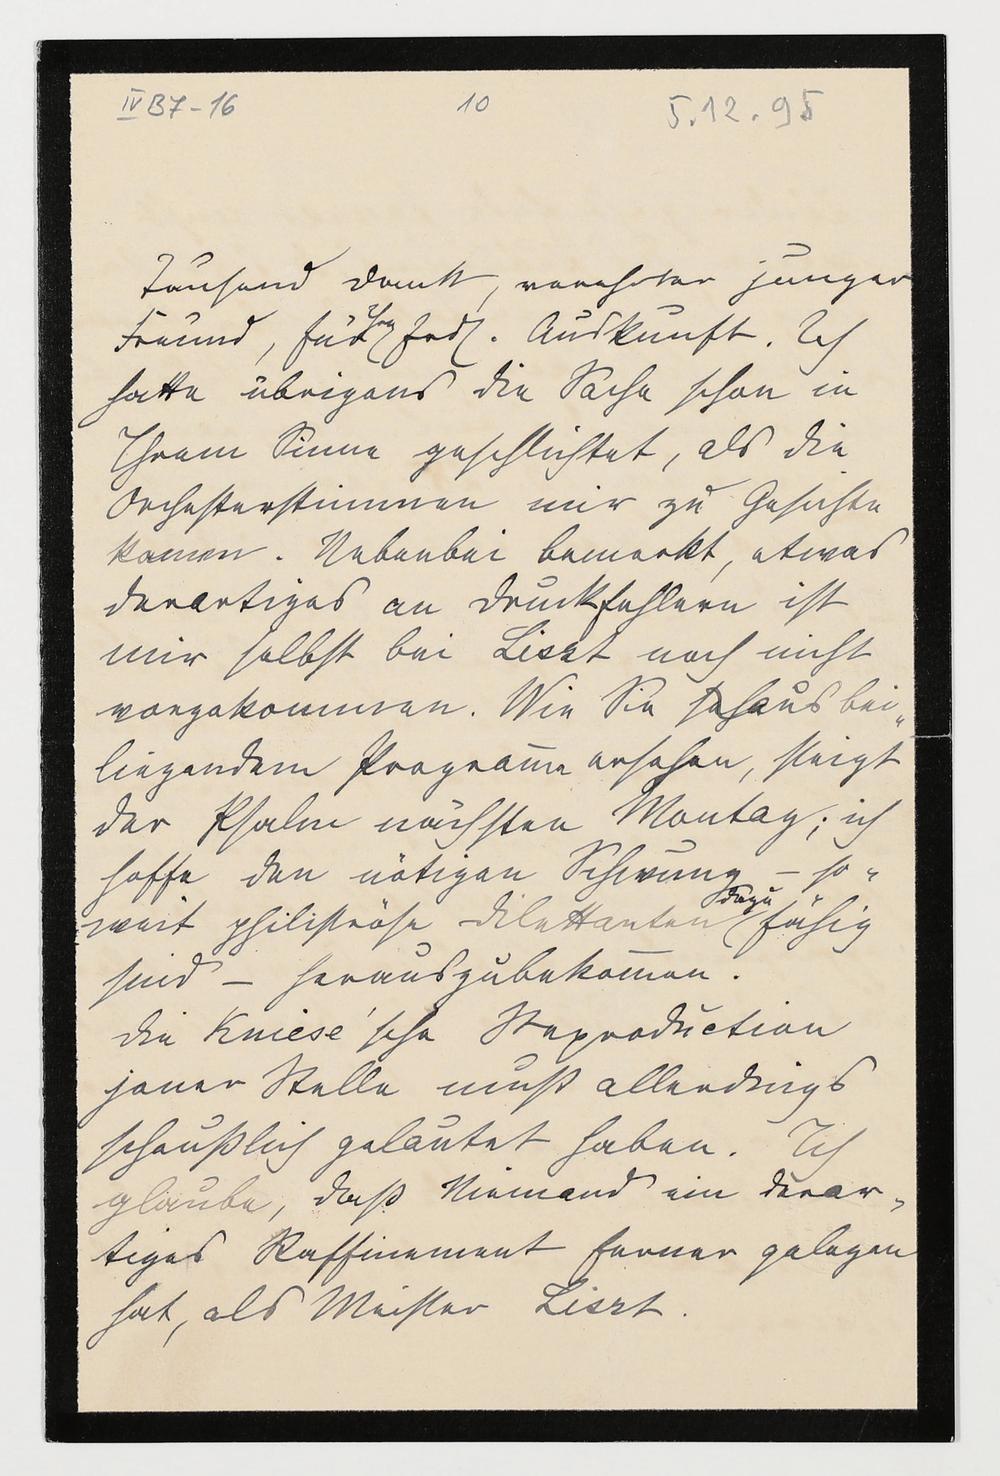 IV B7-16 10 5.12.95
Tausend Dank, verehrter junger
Freund, für Ihre frdl. Auskunft. Ich
hatte übrigens die Sache schon in
Ihrem Sinne geschlichtet, als die
Orchesterstimmen mir zu Gesichte
kamen. Nebenbei bemerkt, etwas
derartiges an Druckfehlern ist
mir selbst bei Liszt noch nicht
vorgekommen. Wie Sie aus bei-
liegendem Programm̅e ersehen, steigt
der Psalm nächsten Montag; ich
hoffe den nötigen Schwung – so-
weit philiströse Dilettanten dazu fähig
sind – herauszubekom̅en.
Die Kniese'sche Reproduction
jener Stelle muß allerdings
scheußlich gelautet haben. Ich
glaube, daß Niemand ein derar-
tiges Raffinement ferner gelegen
hat, als Meister Liszt.